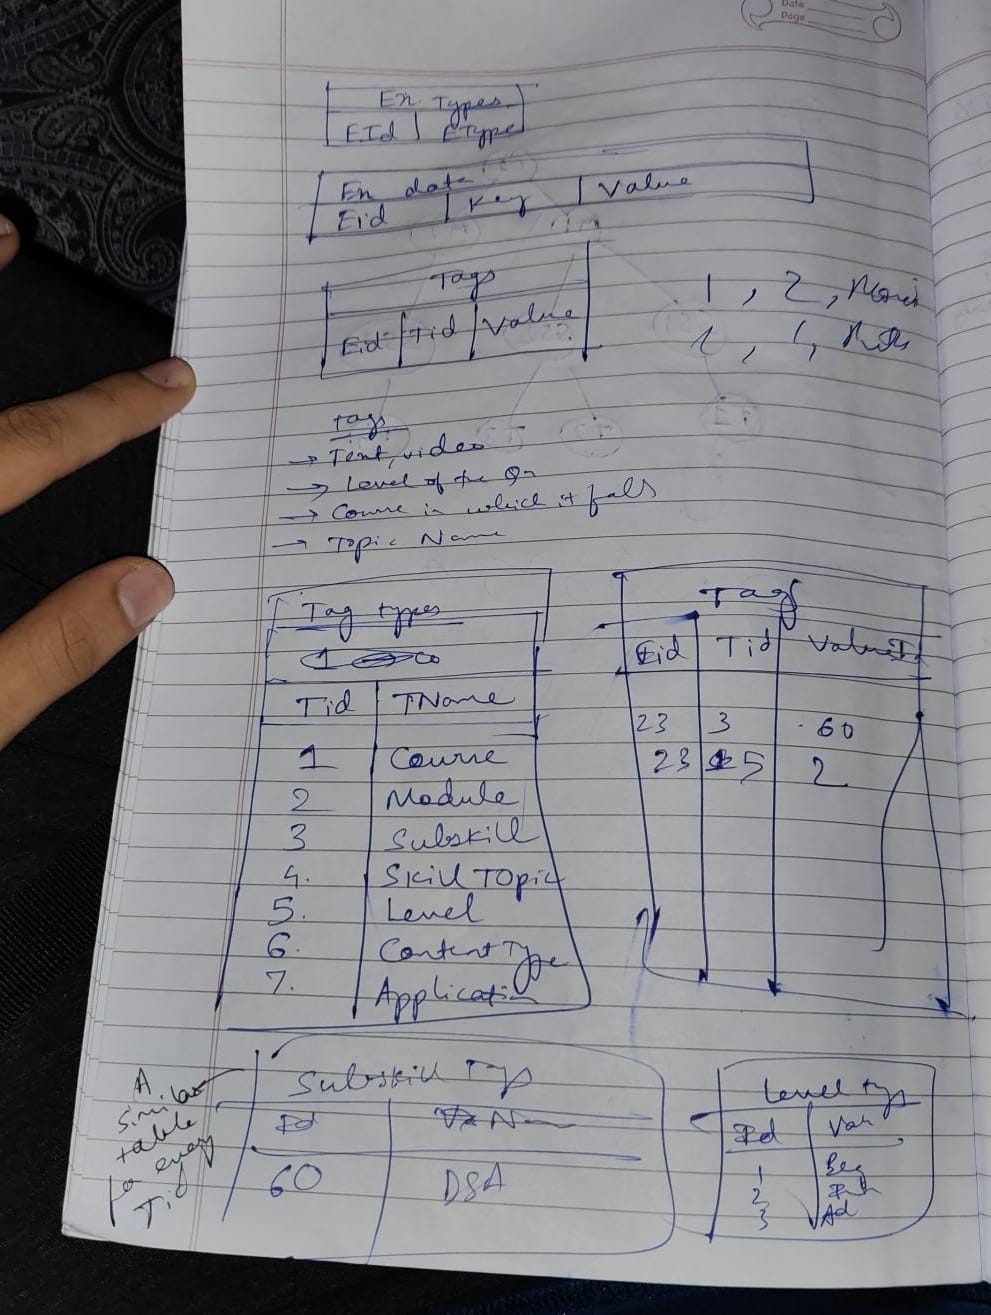 Date
Page
En. Types.
EId | EType
En data
Eid | Key | Value
Tags
Eid | Tid | Value
1, 2,
1, 1,
Tags
→ Text, video
→ Level of the Qn
→ Course in which it falls
→ Topic Name
Tag types
Tid | TName
1 Course
2 Module
3 Subskill
4. Skill Topic
5. Level
6. Content Type
7. Application
Tags
Eid | Tid | Value
23 3 60
23 5 2
A similar
table
for every
Tid
Subskill Tags
Id
60 DSA
Level Tags
Id | Val
1 Beg
2 Int
3 Ad